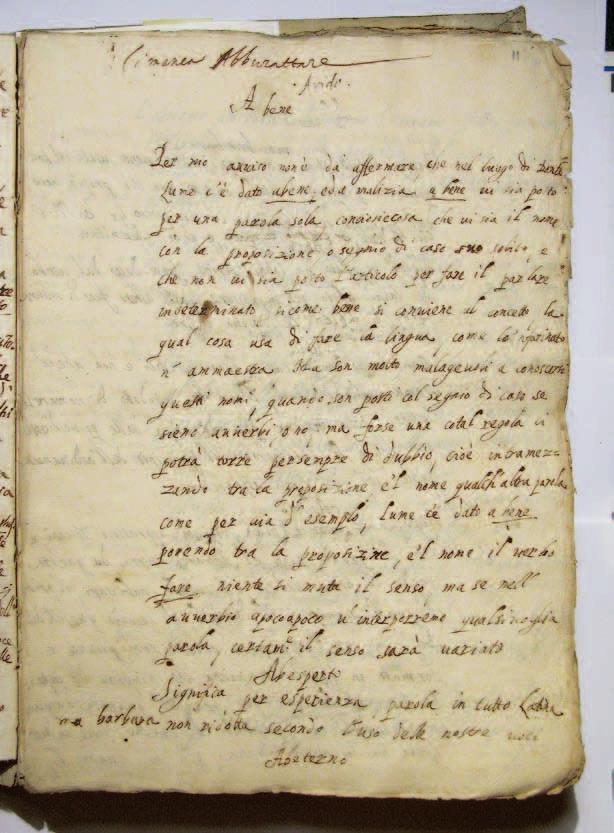 Cimenea Abburattare
11
Avide
A bene
Per mio avviso non è da affermare che nel luogo di Dante
Lume c'è dato a bene, ed a malizia a bene vi sia posto
per una parola sola conciosiecosa che vi sia il nome
con la proposizione o segnio di caso suo solito, e
che non vi sia posto l'articolo per fare il parlare
indeterminato sicome bene si conviene al concetto la
qual cosa usa di fare la lingua, come lo 'nfarinato
n' ammaestra Ma son molto malagevoli a conoscersi
questi nomi, quando son posti col segnio di caso se
sieno avverbi, o no, ma forse una cotal regola ci
potrà torre per sempre di dubbio, cioè intramez-
zando tra la preposizione e 'l nome qualch' altra parola
come per via d' esempio, Lume c'è dato a bene
ponendo tra la proposizine, e 'l nome il verbo
fare niente si muta il senso, ma se nell
avverbio apocoapoco v' interporreno qualsivoglia
parola, certam. il senso sarà variato
Abesperto
Significa per esperienza parola in tutto Latina
ma barbara non ridotta secondo l'uso delle nostre voci
Abeterno